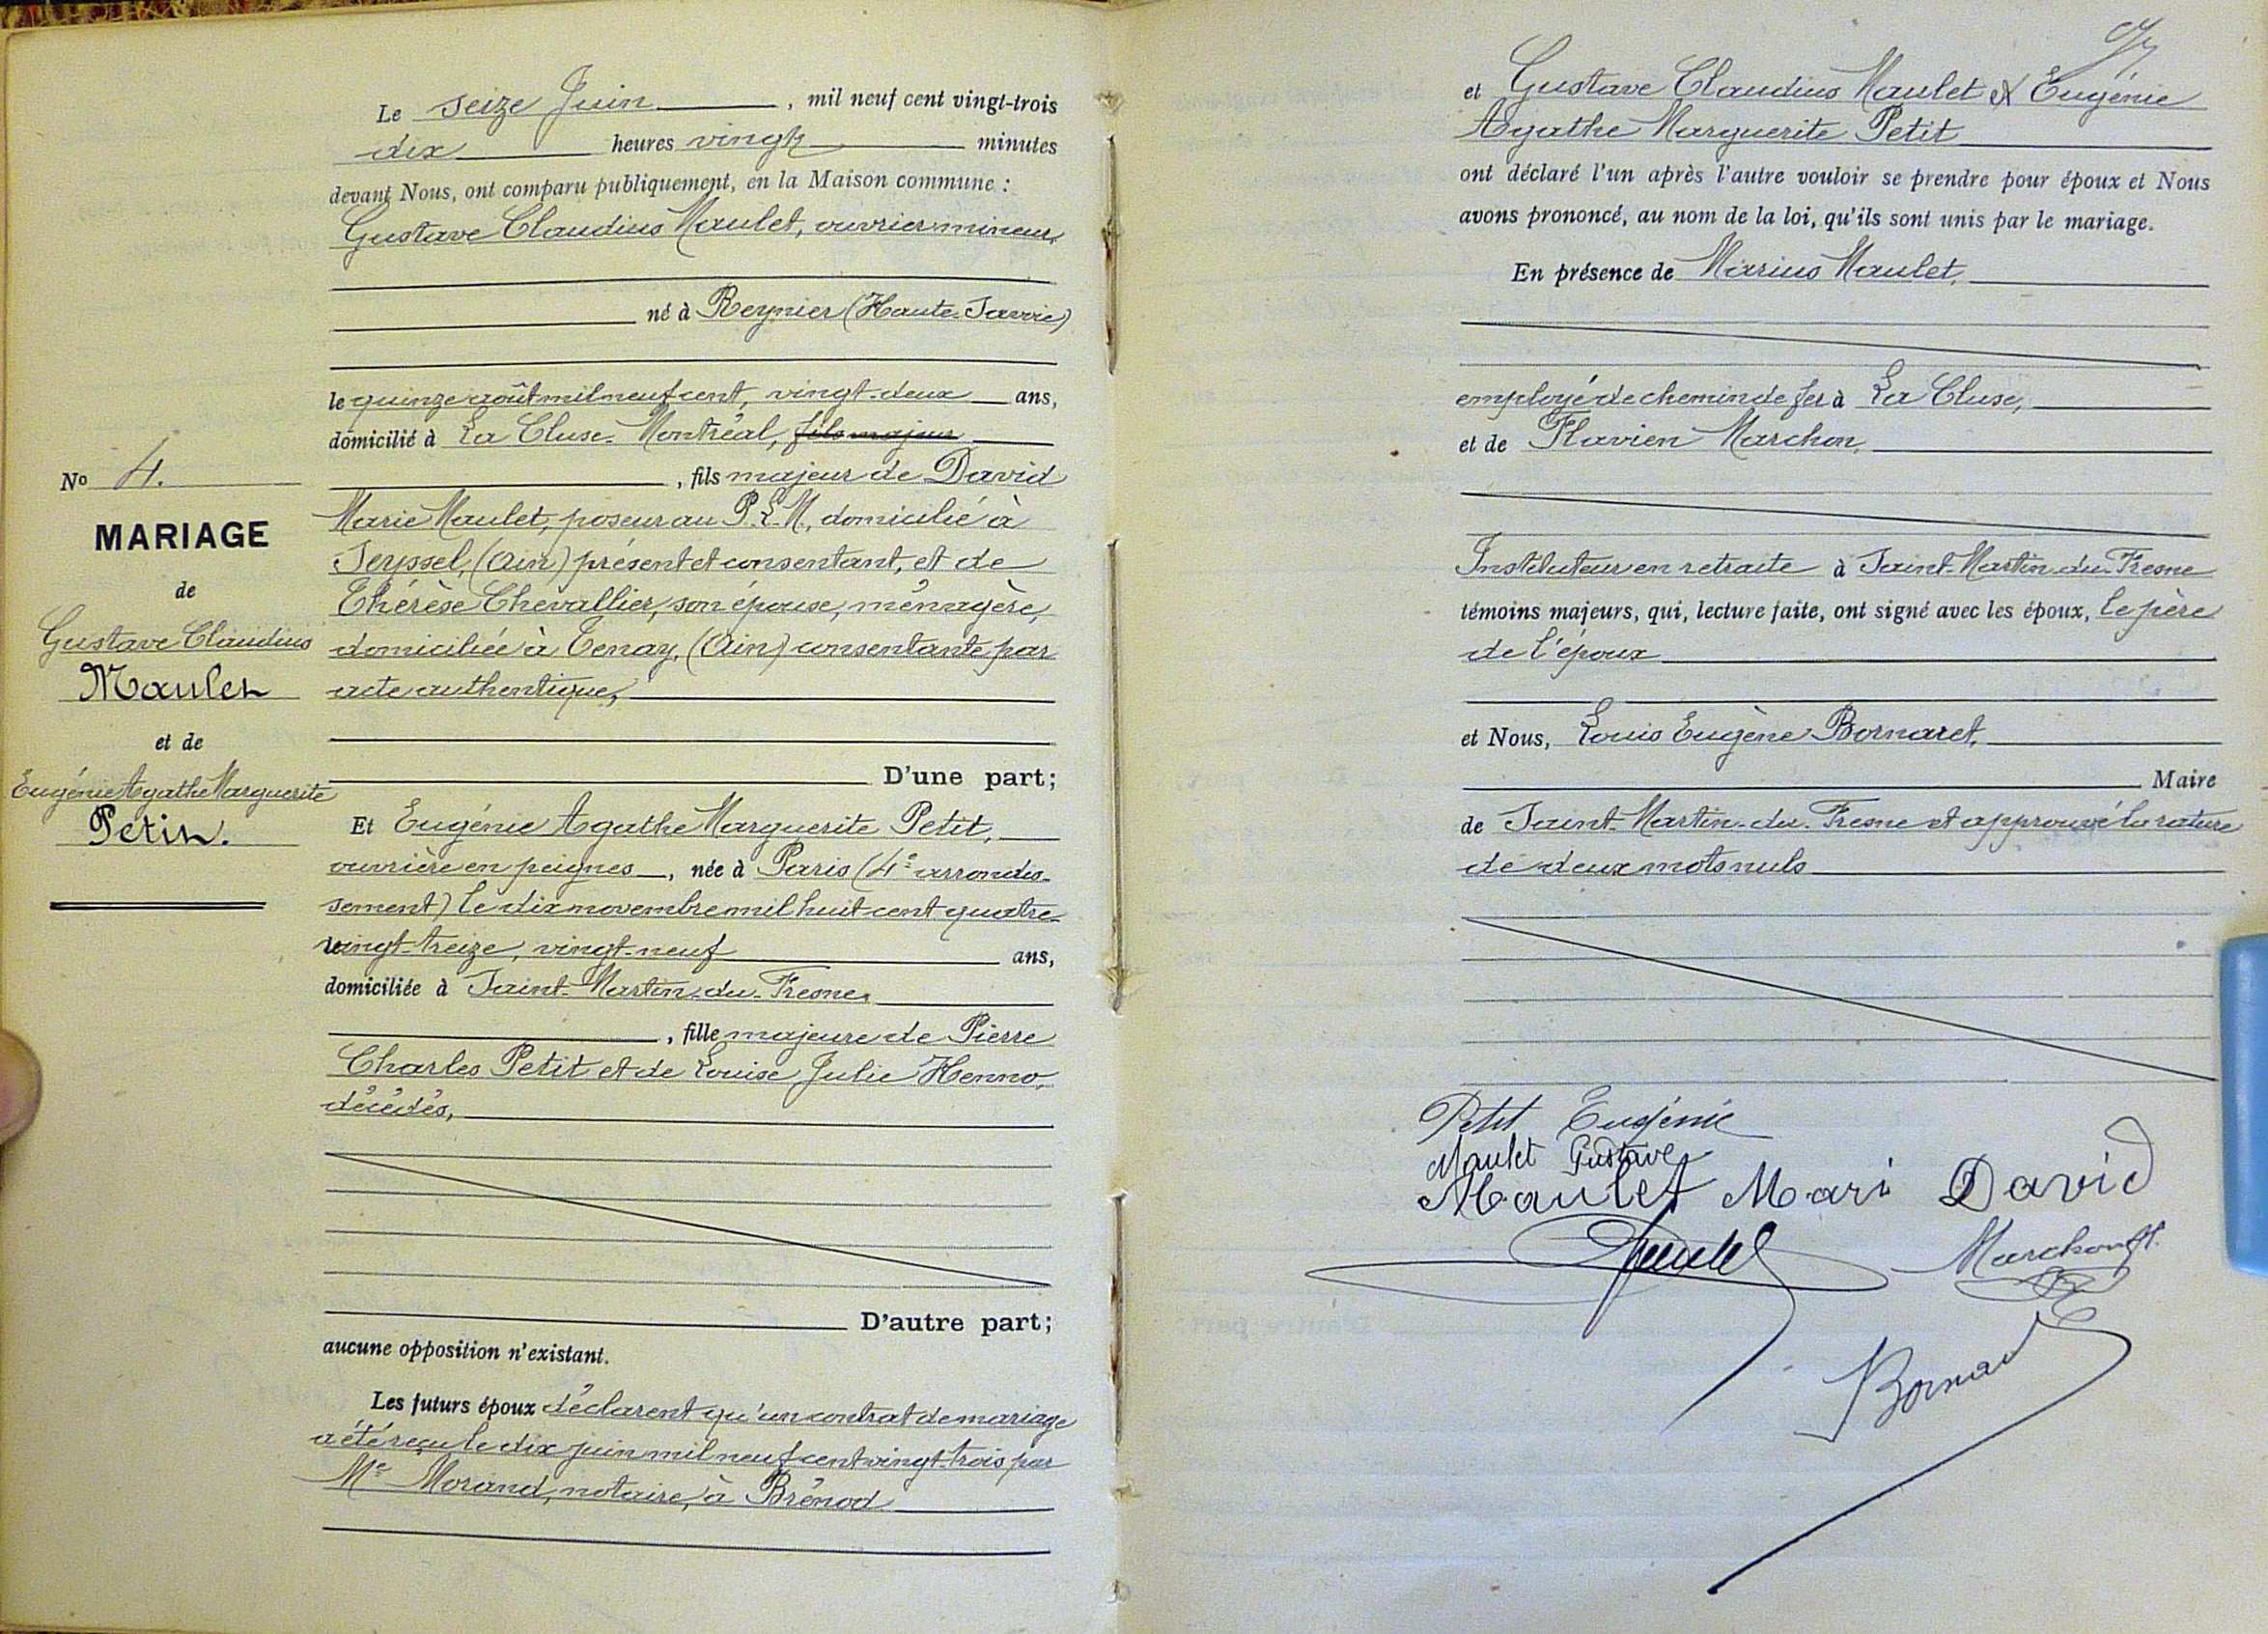 Le seize Juin, mil neuf cent vingt-trois
dix heures vingt minutes
devant Nous, ont comparu publiquement, en la Maison commune :
Gustave Claudius Maulet, ouvrier mineur,
né à Reynier (Haute-Savoie)
le quinze août mil neuf cent, vingt-deux ans,
domicilié à La Cluse-Montréal, fils majeur
, fils majeur de David
Marie Maulet, poseur au P.L.M., domicilié à
Seyssel, (Ain) présent et consentant, et de
Thérèse Chevallier, son épouse, ménagère,
domiciliée à Tenay, (Ain) consentante par
acte authentique,
D'une part;
No 4.
MARIAGE
de
Gustave Claudius
Maulet
et de
Eugénie Agathe Marguerite
Petit.
Et Eugénie Agathe Marguerite Petit,
ouvrière en peignes, née à Paris (4e arrondis-
sement) le dix novembre mil huit cent quatre-
vingt-treize, vingt-neuf ans,
domiciliée à Saint-Martin-du-Fresne,
, fille majeure de Pierre
Charles Petit et de Louise Julie Henno,
décédés,
D'autre part;
aucune opposition n'existant.
Les futurs époux déclarent qu'un contrat de mariage
a été reçu le dix juin mil neuf cent vingt-trois par
Me Morand, notaire, à Brénod
et Gustave Claudius Maulet et Eugénie
Agathe Marguerite Petit
ont déclaré l'un après l'autre vouloir se prendre pour époux et Nous
avons prononcé, au nom de la loi, qu'ils sont unis par le mariage.
En présence de Marius Maulet,
employé de chemin de fer à La Cluse,
et de Flavien Marchon,
Instituteur en retraite à Saint-Martin-du-Fresne
témoins majeurs, qui, lecture faite, ont signé avec les époux, le père
de l'époux
et Nous, Louis Eugène Bornaret,
Maire
de Saint-Martin-du-Fresne et approuvé la rature
de deux mots nuls
Petit Eugénie
Maulet Gustave
Maulet Mari David
Maulet
Marchon ft.